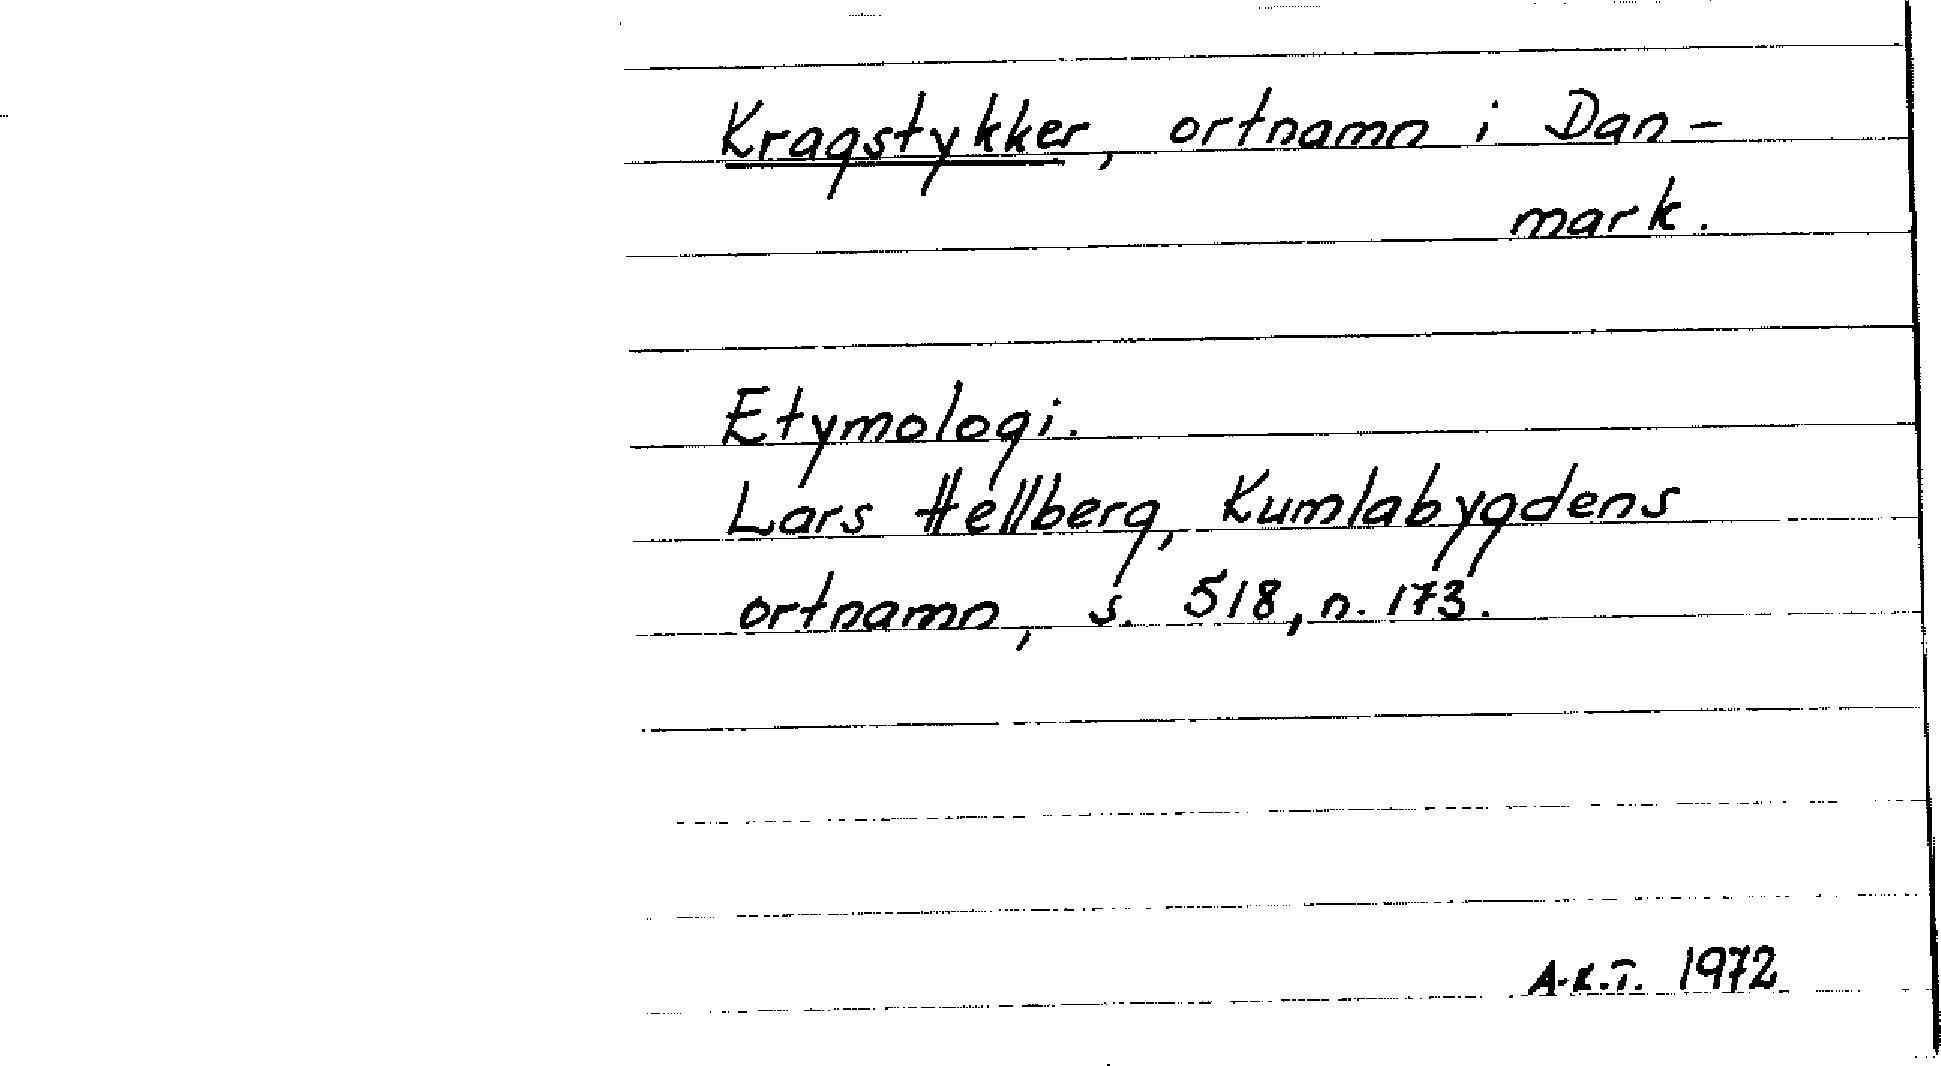 Kragstykker, ortnamn i Dan-
mark.
Etymologi.
Lars Hellberg, Kumlabygdens
ortnamn, s. 518, n. 173.
A-K.T. 1972